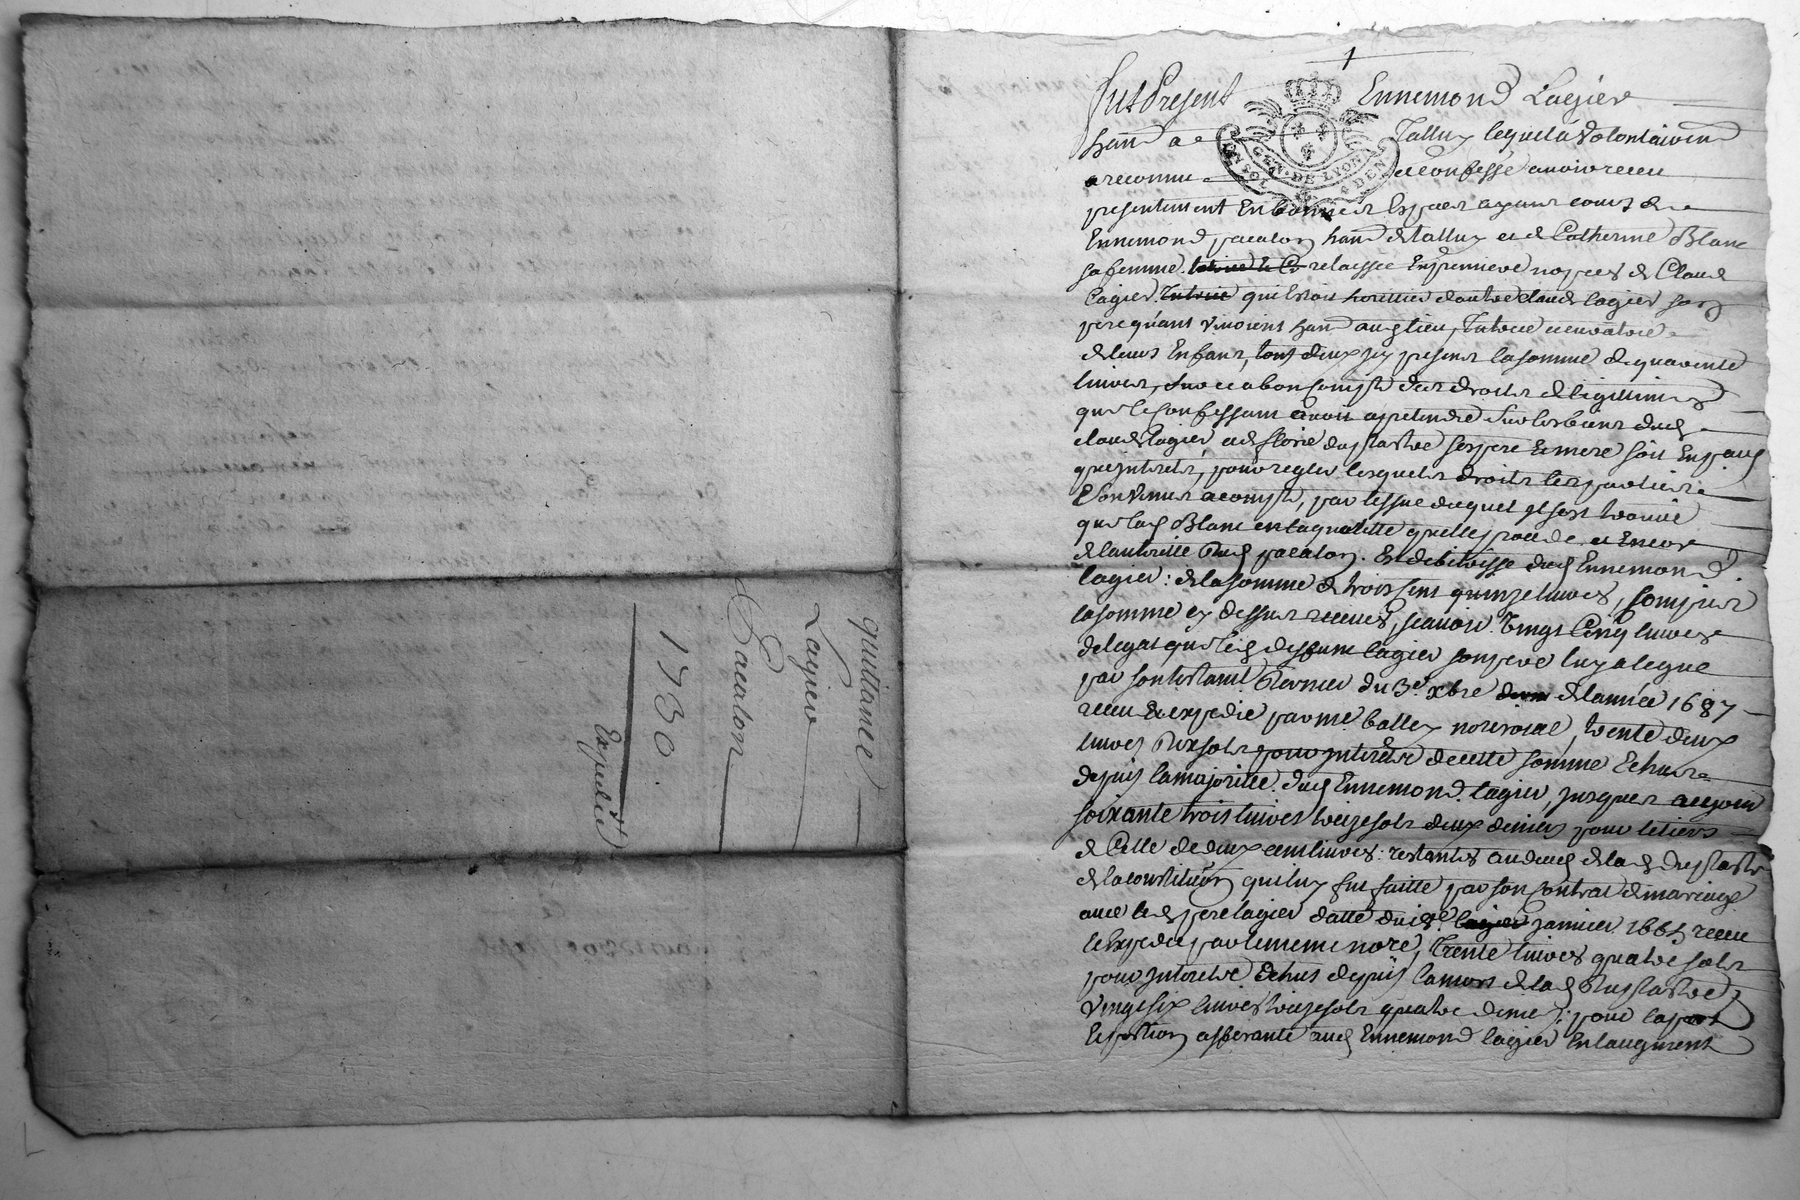 quittance
Lagier
Pacalon
1730.
Expedié
1
Fut Present Ennemond Lagier
hant a Tallux lequel a volontairemt
a reconnu et confessé avoir receu
presentement En bonnes Especes ayant cours de
Ennemond pacalon hant de talluy et de Catherine Blanc
sa femme relaissée En premiere nopces de Claude
Lagier qui Estoit heritier d'autre claude lagier son
pere quant vivoient hant aud lieu, Tutrice
de leurs Enfans, tous deux icy presens la somme de quarente
livres, sur et a bon compte des droits de legitime
que le Confessant avoit a pretendre sur les biens dud
claude lagier, et de ses pere et mere soit En
qu'interets, pour regler lesquels droits les parties
Sont venus a compte, par lissue duquel il sest trouvé
que lad Blanc en la qualitté quelle procede et Encore
de lautorité dud pacalon. Est debitrisse dud Ennemond
lagier: de la somme de trois cent quinze livres, compris
la somme cy dessus receues, scavoir. Vingt Cinq livres
de legat que led deffunt lagier son pere luy a legué
par son testamt dernier du 3e xbre de l'année 1687
receu Et expedié par me ballex nore roial, trente deux
livres dix sols pour interets de cette somme Echus
depuis la majorité dud Ennemond lagier, jusques a ce jour
soixante trois livres treize sols deux deniers pour le tiers
de Celle de deux cent livres: restantes au deceds de lad
de la constitution qui luy fut faitte par son contrat de mariage
avec led pere lagier datté du janvier receu
et Expedié par le meme nore, Trente livres quatre sols
pour interets Echus depuis la mort de lad
Vingt six livres treize sols quatre deniers: pour la part
Et portion afferante aud Ennemond lagier En laugment